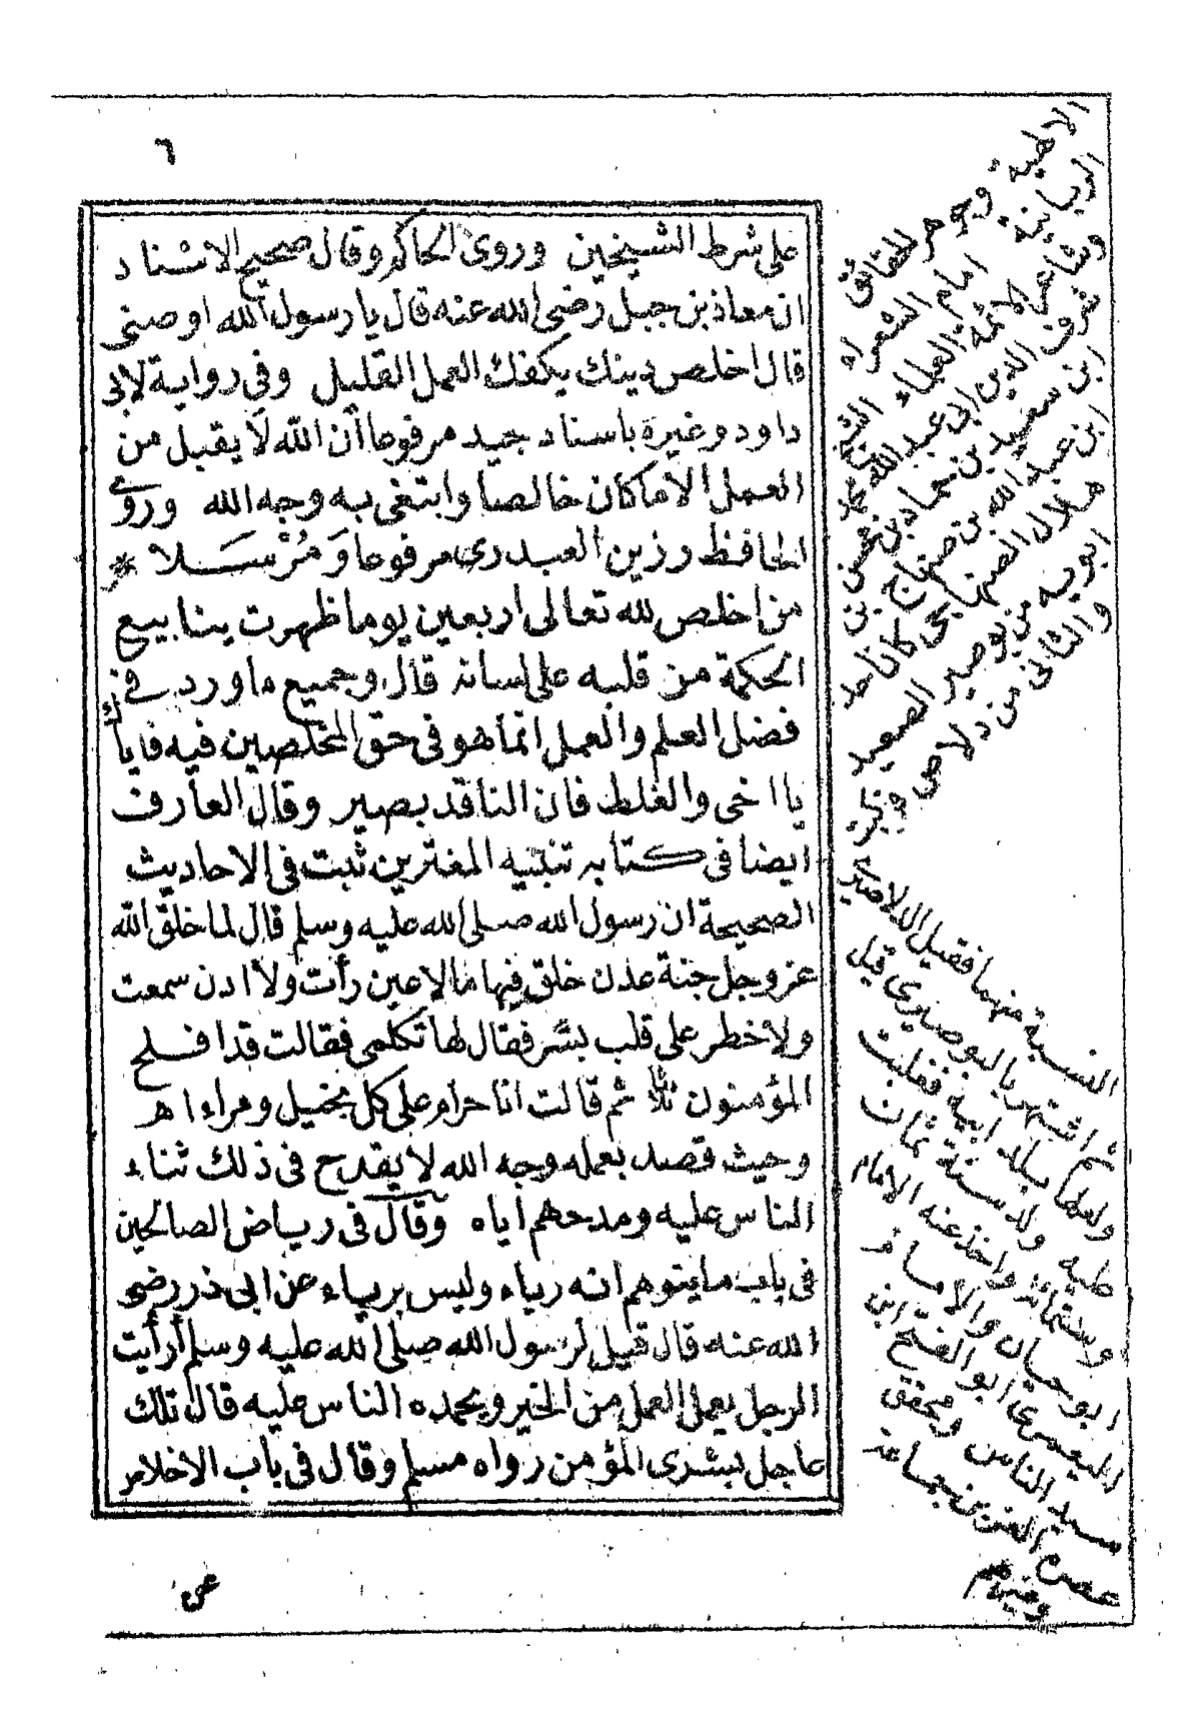 ٦
على شرط الشيخين وروى الحاكم وقال صحيح الاسناد
ان معاذ بن جبل رضى الله عنه قال يا رسول الله اوصنى
قال اخلص دينك يكفك العمل القليل وفى رواية لابى
داود وغيره باسناد جيد مرفوعا أن الله لا يقبل من
العمل الا ما كان خالصا وابتغى به وجه الله وروى
الحافظ رزين العبدرى مرفوعا وَمُرْسَلا *
من اخلص لله تعالى اربعين يوما ظهرت ينابيع
الحكمة من قلبه على لسانه قال وجميع ما ورد فى
فضل العلم والعمل انما هو فى حق المخلصين فيه فاياك
يا اخى والغلط فان الناقد بصير وقال العارف
ايضا فى كتابه تنبيه المغترين ثبت فى الاحاديث
الصحيحة ان رسول الله صلى الله عليه وسلم قال لما خلق الله
عز وجل جنة عدن خلق فيها ما لا عين رأت ولا اذن سمعت
ولا خطر على قلب بشر فقال لها تكلمى فقالت قد افلح
المؤمنون ثلاثا ثم قالت انا حرام على كل بخيل ومراء اهـ
وحيث قصد بعمله وجه الله لا يقدح فى ذلك ثناء
الناس عليه ومدحهم اياه وقال فى رياض الصالحين
فى باب ما يتوهم انه رياء وليس برياء عن ابى ذر رضى
الله عنه قال قيل لرسول الله صلى الله عليه وسلم أرأيت
الرجل يعمل العمل من الخير ويحمده الناس عليه قال تلك
عاجل بشرى المؤمن رواه مسلم وقال فى باب الاخلاص
وجوهر الحقائق
الربانية امام الشعراء
شرف الدين ابى عبد الله محمد
ابن سعيد بن حماد بن محسن بن
ابن عبد الله بن صنهاج بن
هلال الصنهاجى كان احد
ابويه من بوصير الصعيد
والثانى من دلاص فركبت
النسبة منهما فقيل الدلاصيرى
ثم اشتهر بالبوصيرى قيل
ولعلها بلد ابيه فغلبت
عليه ولد سنة ثمان
وستمائة واخذ عنه الامام
ابو حيان والامام
اليعمرى ابو الفتح ابن
سيد الناس ومحقق
عصره العز بن جماعة
وغيرهم
عن